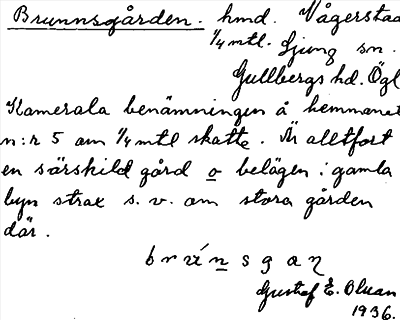 Brunnsgården. hmd. Vågerstad
1/4 mtl. Ljung sn.
Gullbergs hd. Ögl
Kamerala benämningen å hemmanet
n:r 5 om 1/4 mtl skatte. Är alltfort
en särskild gård o belägen i gamla
byn strax s. v. om stora gården
där.
Gustaf E. Bluan
1936.